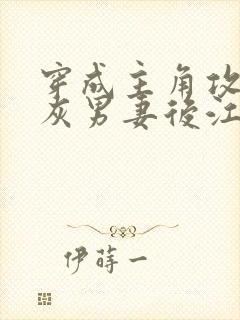 穿成主角攻
灰男妻後江
伊蒔一